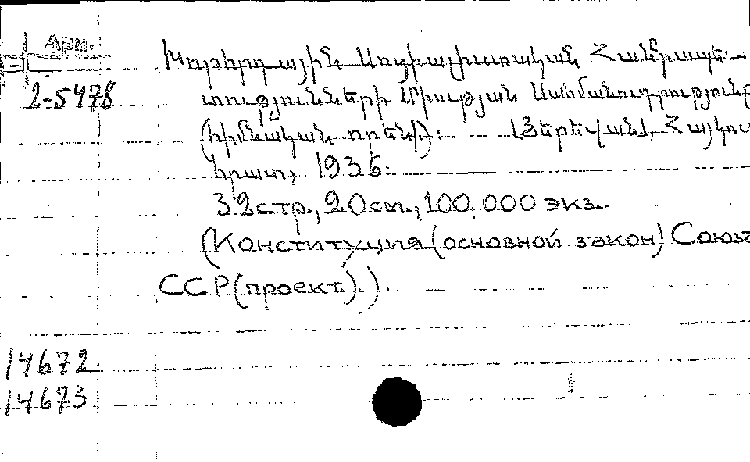 Арм.
2-5478
Խորհրդային Սոցիալիստական Հանրապե-
տությունների Միության Սահմանադրություն
(հիմնական օրենք): [Երևան], Հայկու
հրատ, 1936:
32 стр., 20 см., 100.000 экз.
(Конституция (основной закон) Союза
ССР (проект).)
14672
14673